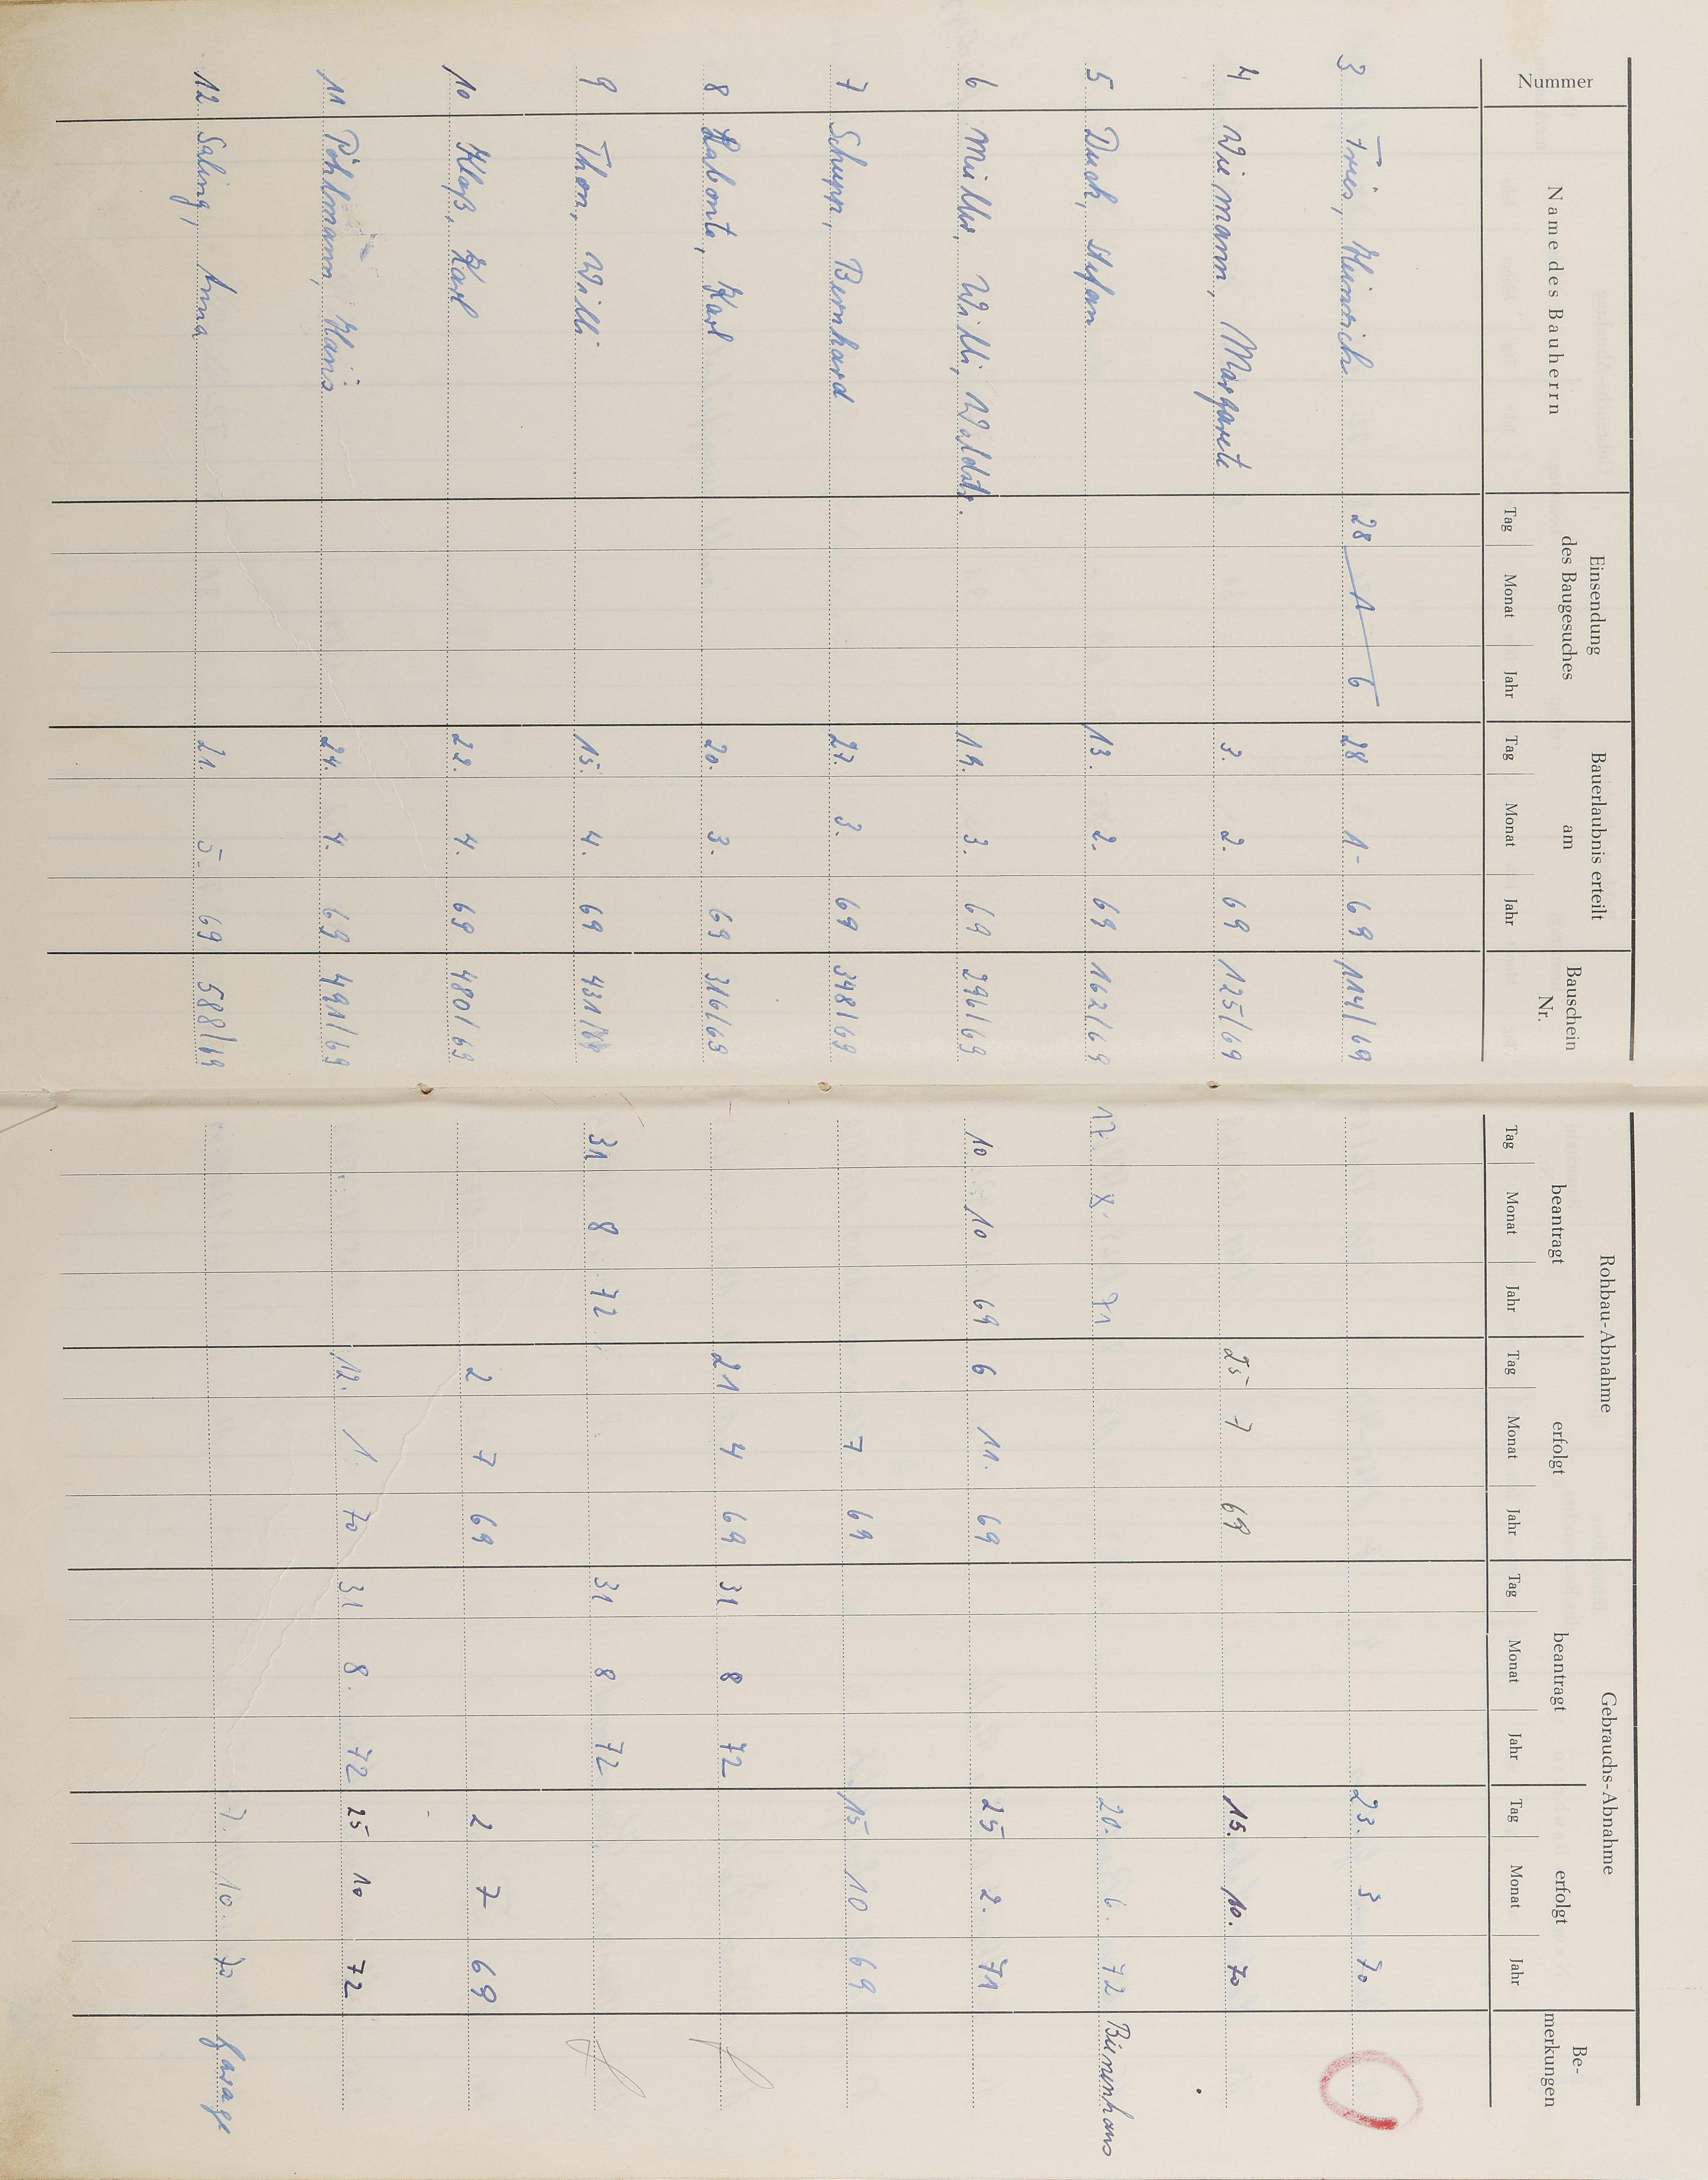 Nummer Name des Bauherrn Einsendung des Baugesuches Bauerlaubnis erteilt am Bauschein Nr. Rohbau-Abnahme Gebrauchs-Abnahme Bemerkungen
beantragt erfolgt beantragt erfolgt
Tag Monat Jahr Tag Monat Jahr Tag Monat Jahr Tag Monat Jahr Tag Monat Jahr Tag Monat Jahr
3 Fries, Heinrich 28 1 6 28 1- 69 114/69 23. 3 70
4 Wiemann, Margarete 3. 2. 69 125/69 25 7 69 15. 10. 70
5 Duch, Stefan 13. 2. 69 162/69 17. 8. 71 20. 6. 72 Bienenhaus
6 Müller, Willi, Waldstr. 19. 3. 69 296/69 10 10 69 6 11. 69 25 2. 71
7 Schupp, Bernhard 27. 3. 69 348/69 7 69 15 10 69
8 Labonte, Karl 20. 3. 69 316/69 21 4 69 31 8 72
9 Thon, Willi 15. 4. 69 431/69 31 8 72 31 8 72
10 Klaß, Karl 22. 4. 69 480/69 2 7 69 2 7 69
11 Pöhlmann, Hans 24. 4. 69 491/69 12. 1. 70 31 8. 72 25 10 72
12 Saling, Anna 21. 5. 69 588/69 7. 10. 70 Garage